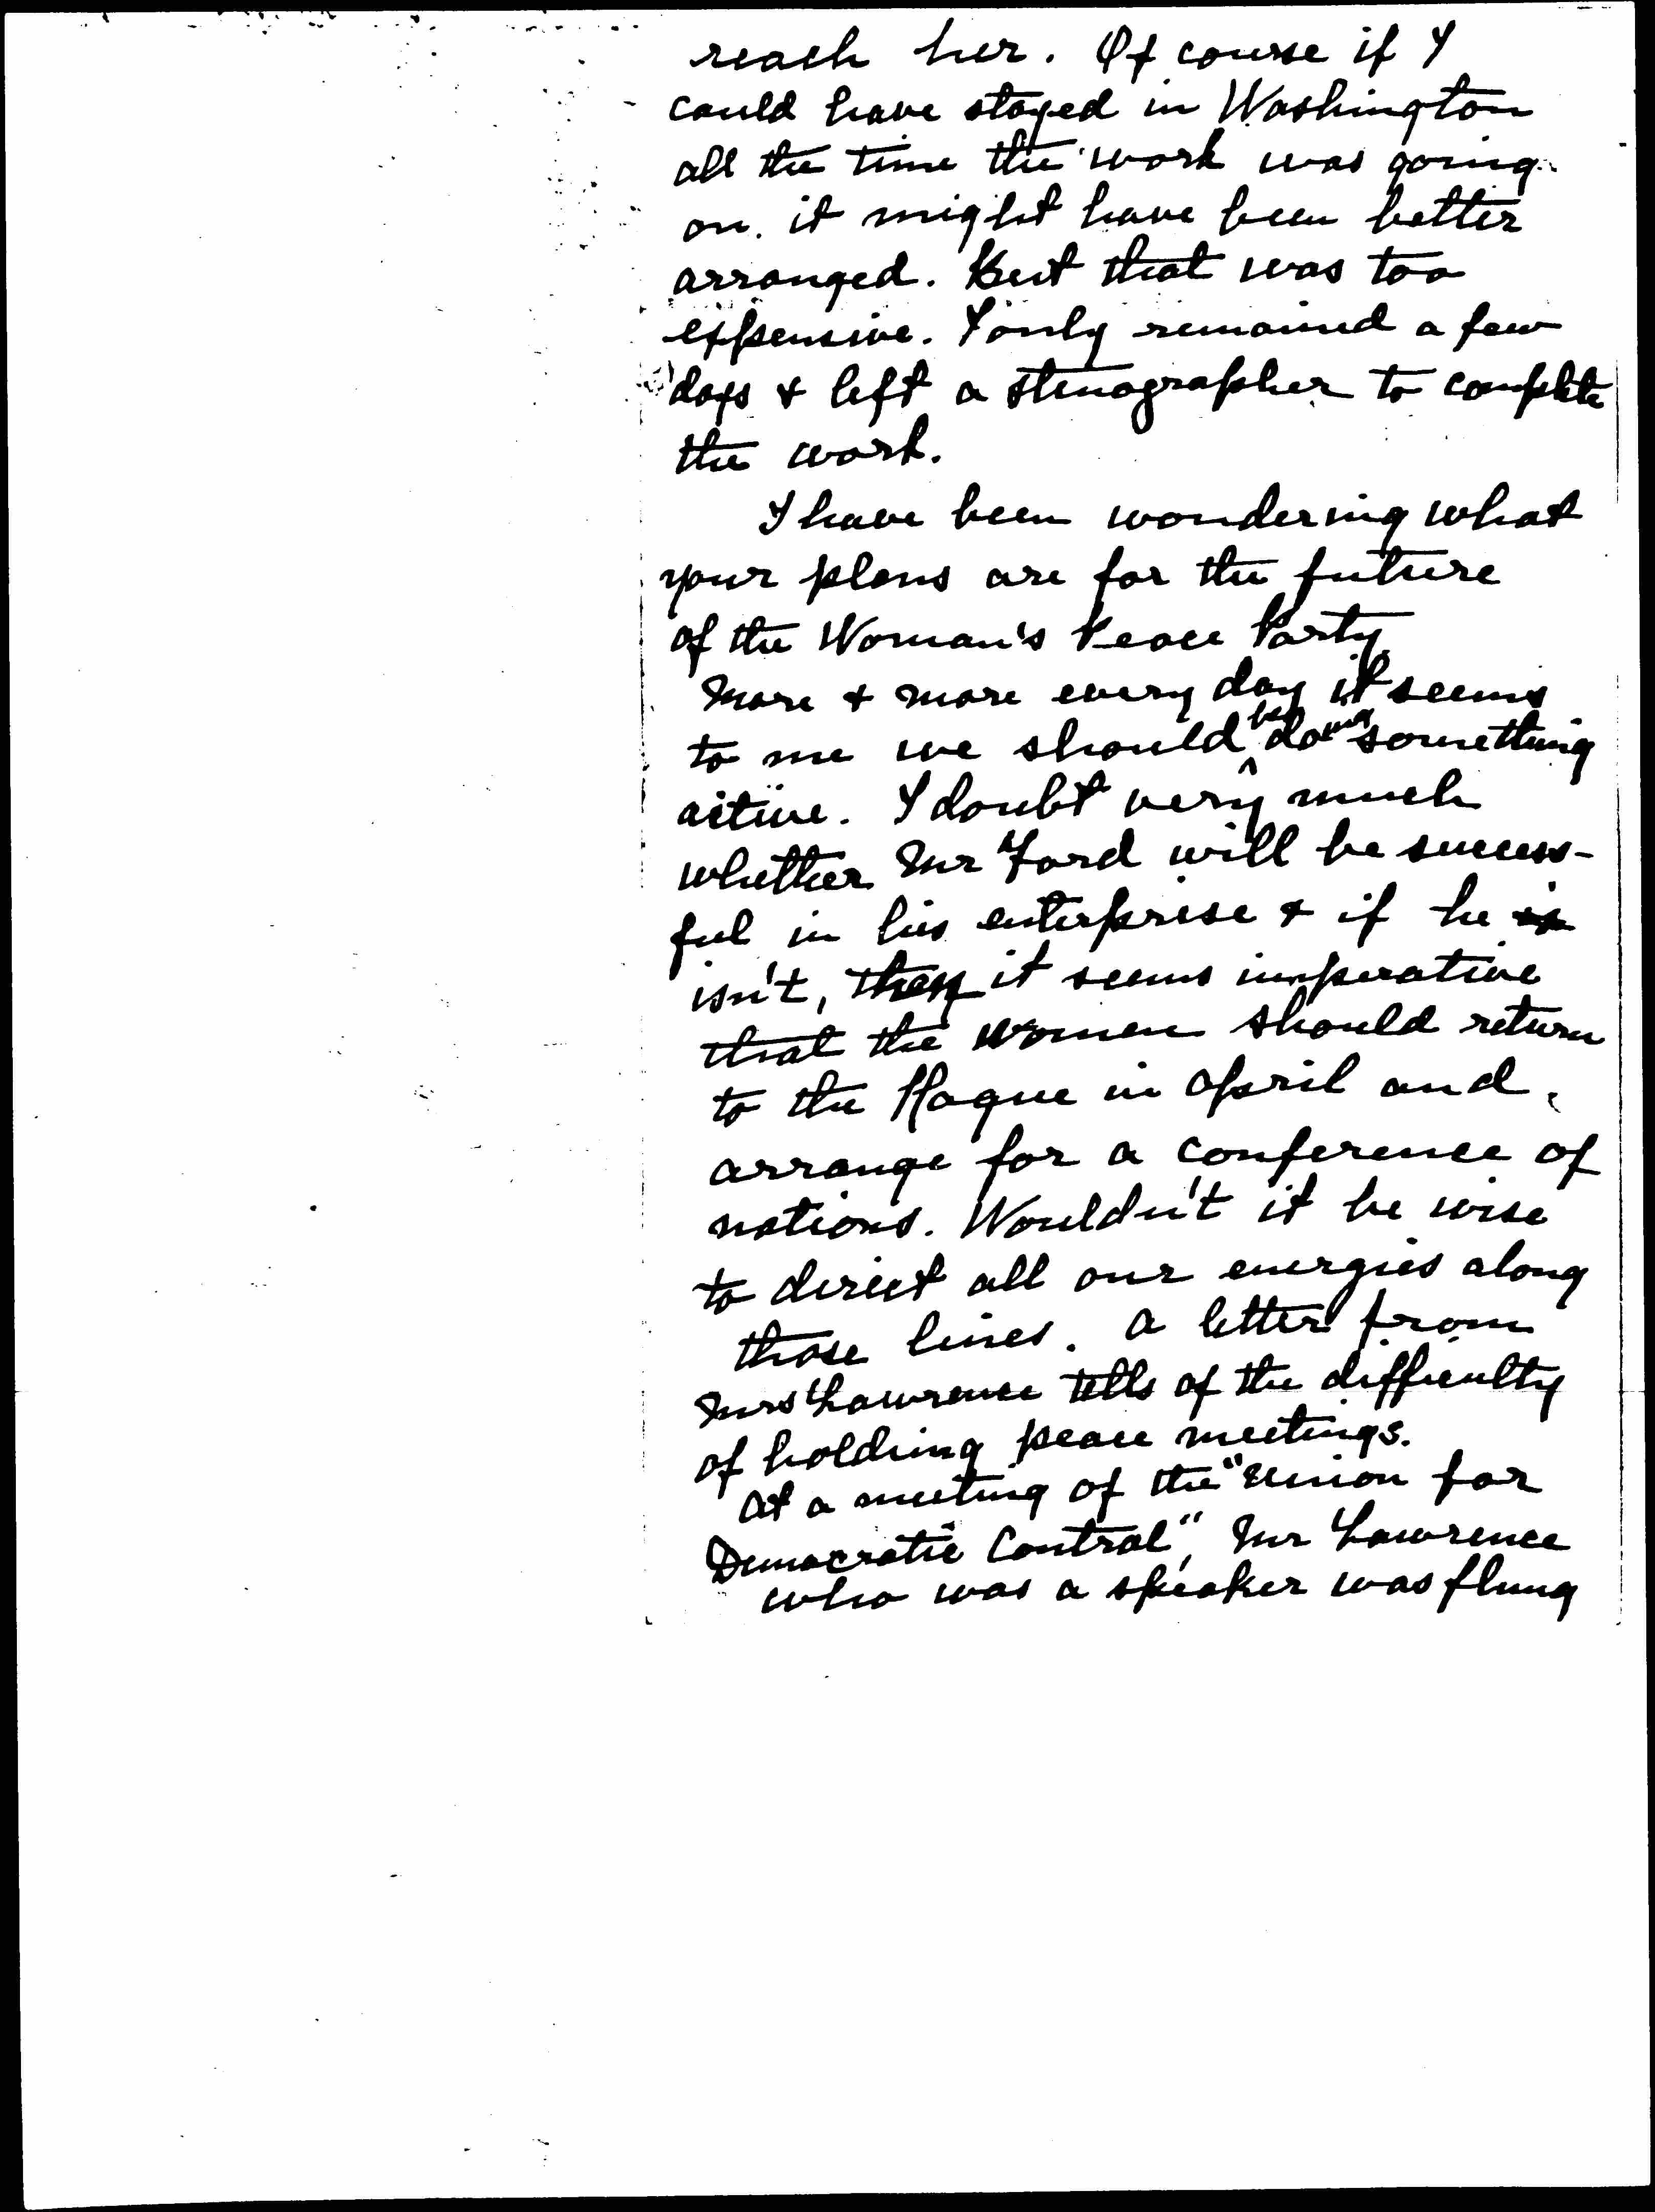 reach her. Of course if I
could have stayed in Washington
all the time the work was going
on. it might have been better
arranged. But that was too
expensive. I only remained a few
days & left a stenographer to complete
the work.
I have been wondering what
your plans are for the future
of the Woman's Peace Party.
More & more every day it seems
to me we should be doing something
active. I doubt very much
whether Mr Ford will be success-
ful in his enterprise & if he is
isn't, then it seems imperative
that the women should return
to the Hague in April and
arrange for a conference of
nations. Wouldn't it be wise
to direct all our energies along
those lines. A letter from
Mrs Lawrence tells of the difficulty
of holding peace meetings.
At a meeting of the "Union for
Democratic Control", Mr Lawrence
who was a speaker was flung